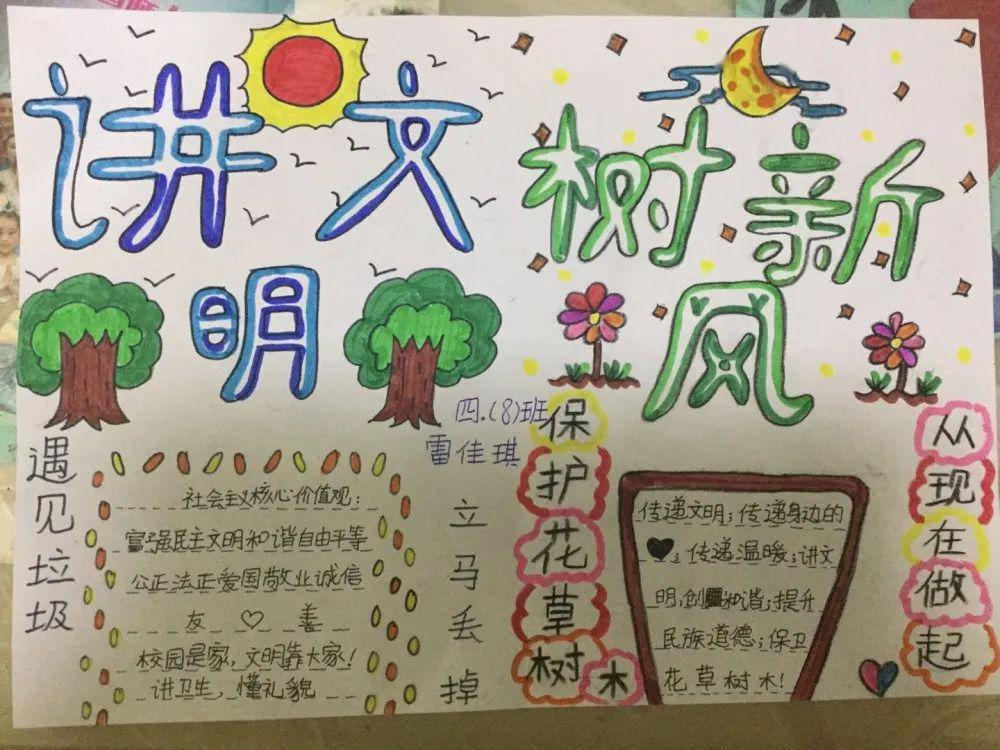 讲文明
树新风
四.(8)班
雷佳琪
遇见垃圾
社会主义核心价值观:
富强民主文明和谐自由平等
公正法正爱国敬业诚信
友♡善
校园是家,文明靠大家!
讲卫生,懂礼貌
立马丢掉
保护花草树木
传递文明;传递身边的
♥;传递温暖;讲文
明;创和谐;提升
民族道德;保卫
花草树木!
从现在做起